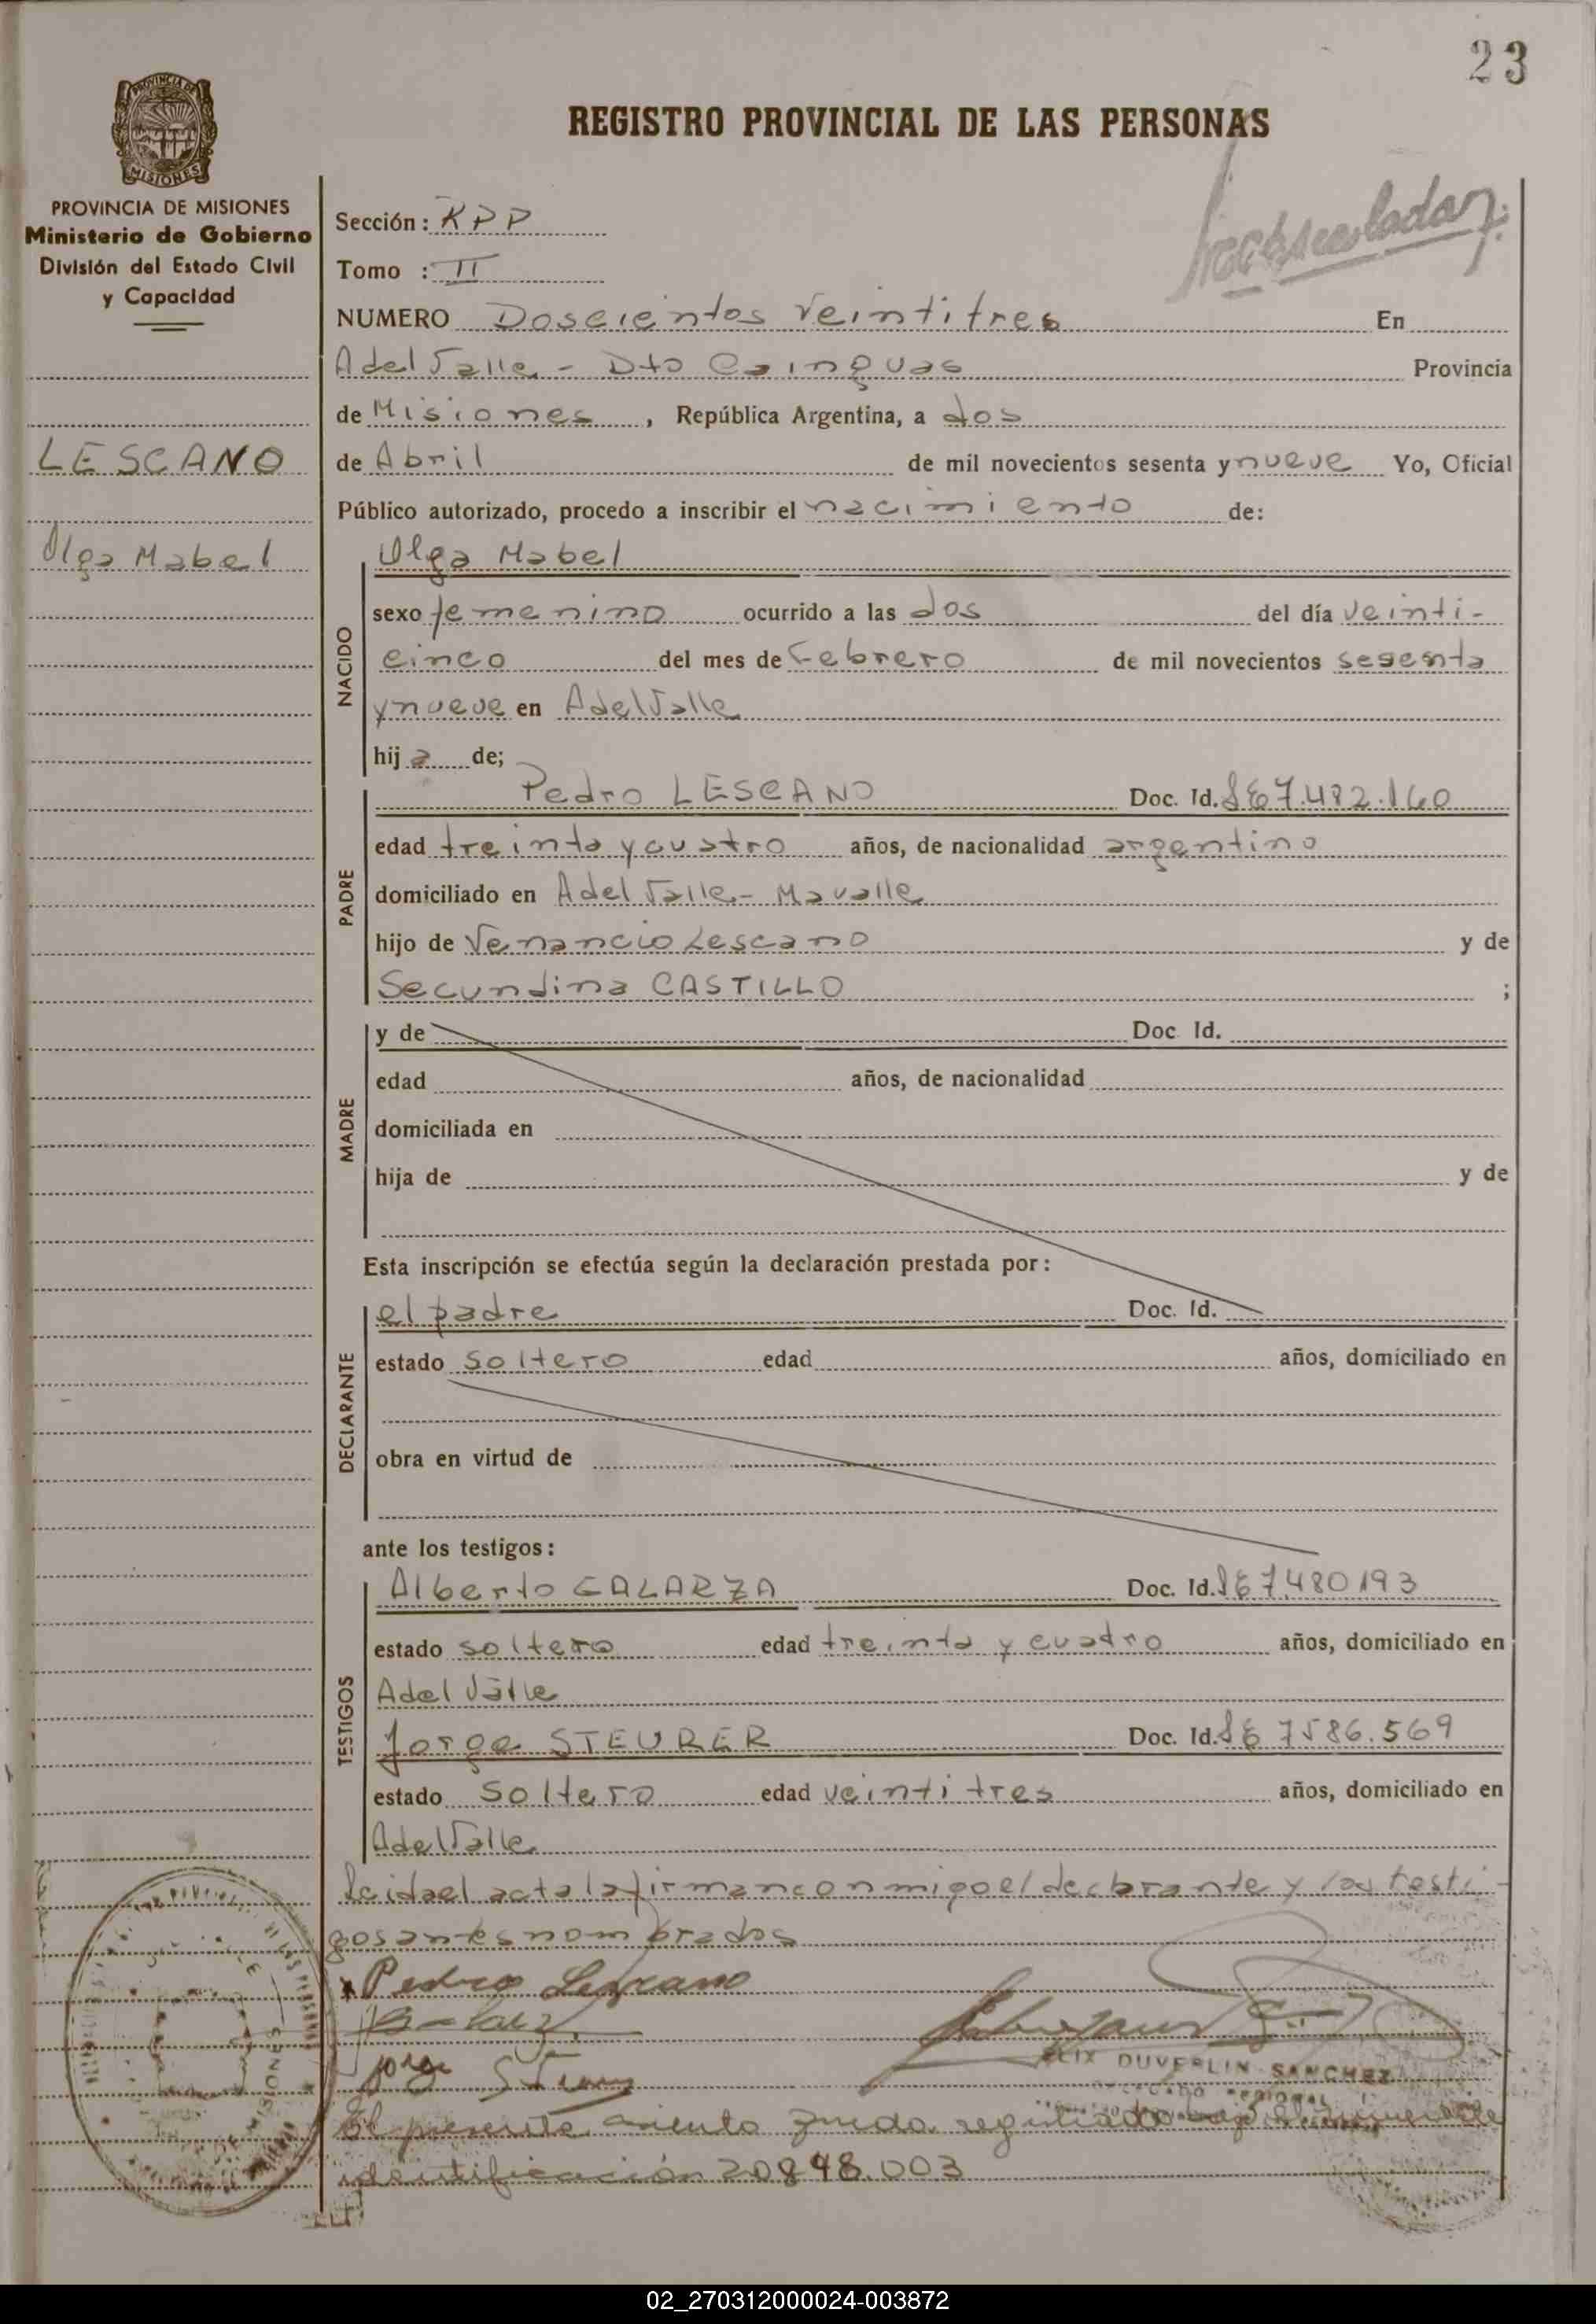 23
REGISTRO PROVINCIAL DE LAS PERSONAS
PROVINCIA DE
MISIONES
PROVINCIA DE MISIONES
Ministerio de Gobierno
División del Estado Civil
y Capacidad
LESCANO
Olga Mabel
Sección: RPP
Tomo : II
NUMERO Doscientos Veintitres En
Adel Valle - Dto Cainguas Provincia
de Misiones , República Argentina, a dos
de Abril de mil novecientos sesenta y nueve Yo, Oficial
Público autorizado, procedo a inscribir el nacimiento de:
NACIDO
Olga Mabel
sexo femenino ocurrido a las dos del día veinti-
cinco del mes de Febrero de mil novecientos sesenta
y nueve en Adel Valle
hij a de;
PADRE
Pedro LESCANO Doc. Id.
edad treinta y cuatro años, de nacionalidad argentino
domiciliado en Adel Valle - Mavalle
hijo de Venancio Lescano y de
Secundina CASTILLO ;
MADRE
y de Doc Id.
edad años, de nacionalidad
domiciliada en
hija de y de
Esta inscripción se efectúa según la declaración prestada por:
DECLARANTE
el padre Doc. Id.
estado soltero edad años, domiciliado en
obra en virtud de
ante los testigos:
TESTIGOS
Alberto GALARZA Doc. Id. 7.480193
estado soltero edad treinta y cuatro años, domiciliado en
Adel Valle
Jorge STEURER Doc. Id. 7586.569
estado Soltero edad veintitres años, domiciliado en
Adel Valle
Leida el acta la firman conmigo el declarante y los testi-
gos antes nombrados
Pedro Lescano
Jorge
FELIX DUVERLIN SANCHEZ
El presente asiento queda registrado bajo
identificación 20848.003
02_270312000024-003872